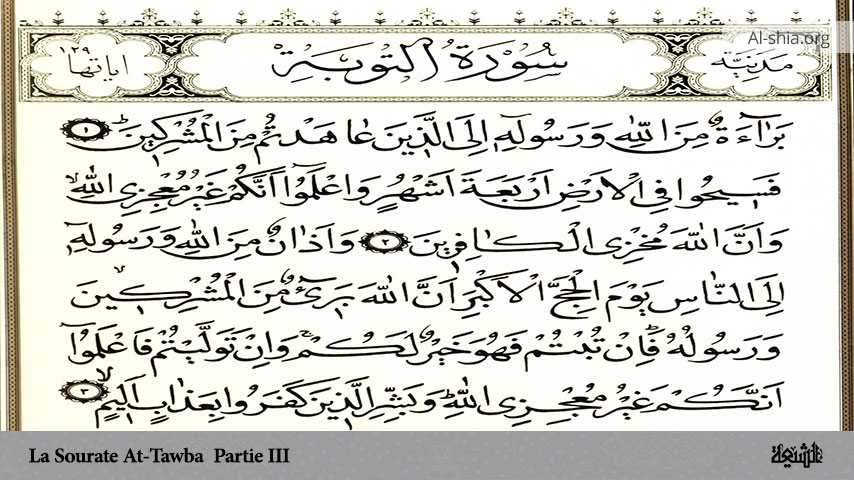 Al-shia.org
اياتها ١٢٩
سُورَةُ التَّوْبَةِ
مَدَنِيَّة
بَرَآءَةٌ مِنَ اللهِ وَرَسُولِهِ اِلَى الَّذِينَ عَاهَدْتُمْ مِنَ الْمُشْرِكِينَ ١
فَسِيحُوا فِى الْاَرْضِ اَرْبَعَةَ اَشْهُرٍ وَاعْلَمُوا اَنَّكُمْ غَيْرُ مُعْجِزِى اللهِ
وَاَنَّ اللهَ مُخْزِى الْكَافِرِينَ ٢ وَاَذَانٌ مِنَ اللهِ وَرَسُولِهِ
اِلَى النَّاسِ يَوْمَ الْحَجِّ الْاَكْبَرِ اَنَّ اللهَ بَرِىءٌ مِنَ الْمُشْرِكِينَ
وَرَسُولُهُ فَاِنْ تُبْتُمْ فَهُوَ خَيْرٌ لَكُمْ وَاِنْ تَوَلَّيْتُمْ فَاعْلَمُوا
اَنَّكُمْ غَيْرُ مُعْجِزِى اللهِ وَبَشِّرِ الَّذِينَ كَفَرُوا بِعَذَابٍ اَلِيمٍ ٣
La Sourate At-Tawba Partie III
الشيعة